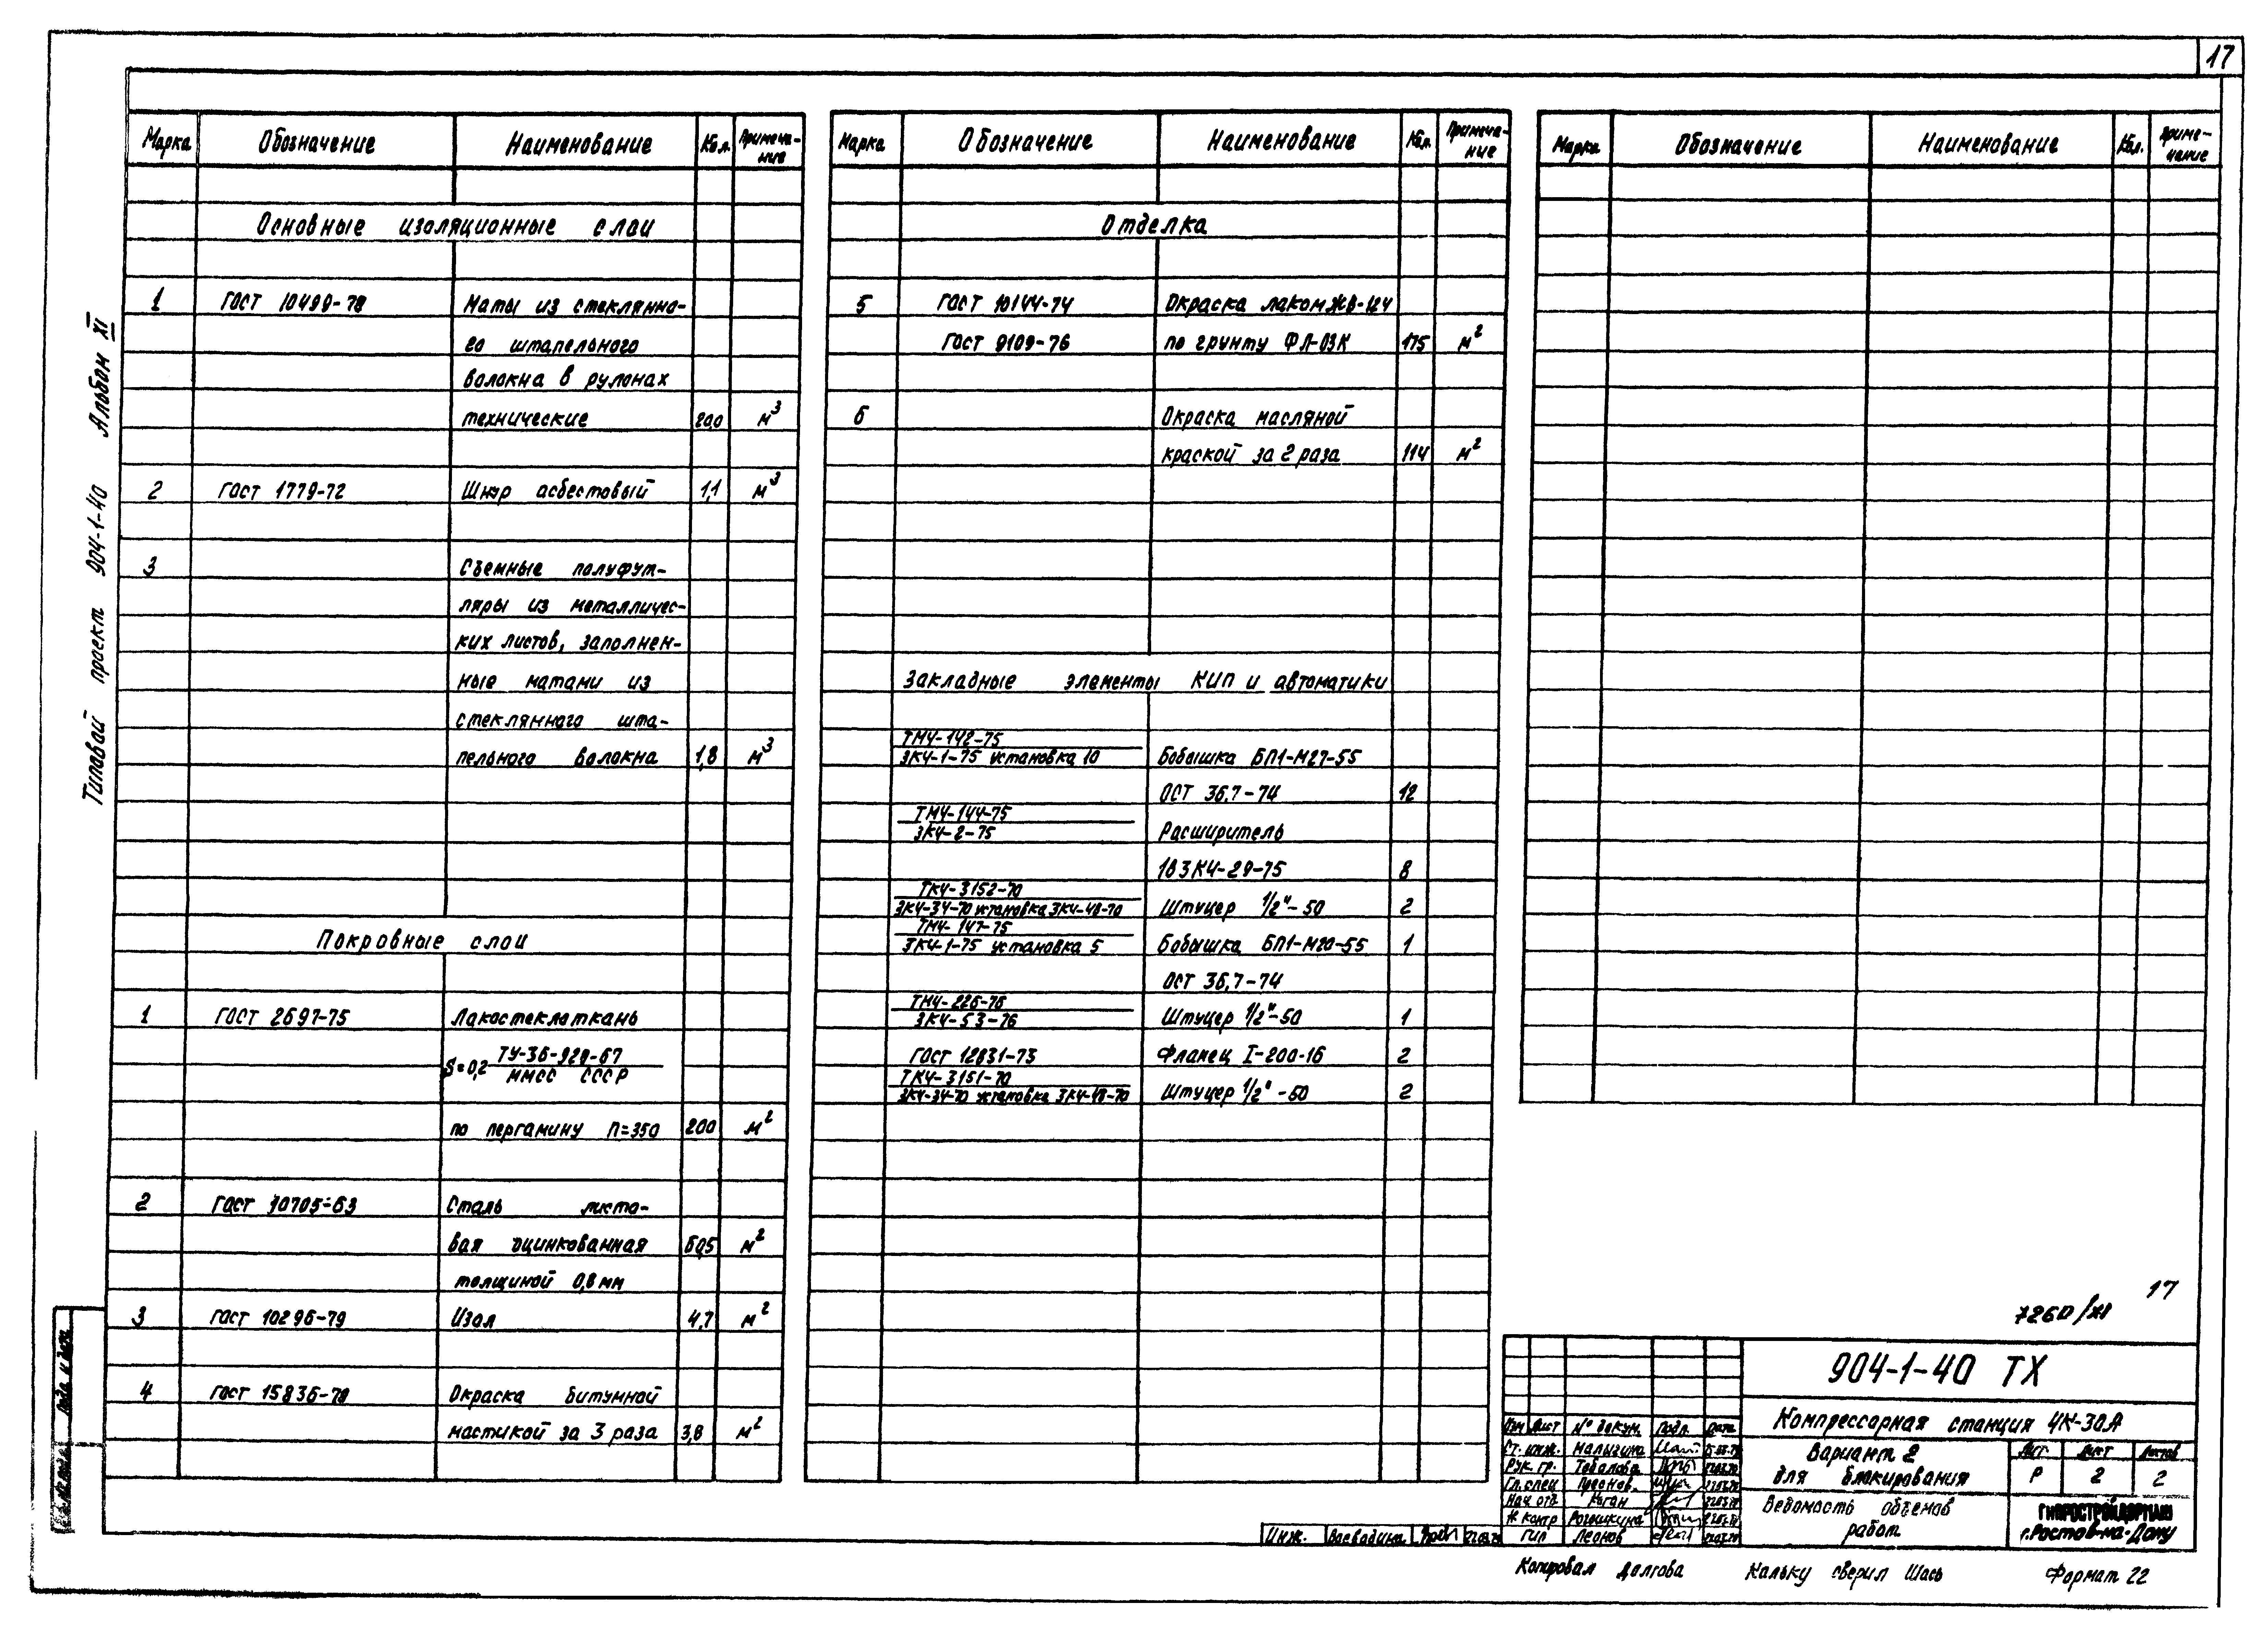 17
Типовой проект 904-1-40 Альбом XI
Марка Обозначение Наименование Кол. Примеча-
ние
Основные изоляционные слои
1 ГОСТ 10499-78 Маты из стеклянно-
го штапельного
волокна в рулонах
технические 20,0 м³
2 ГОСТ 1779-72 Шнур асбестовый 1,1 м³
3 Съемные полуфут-
ляры из металличес-
ких листов, заполнен-
ные матами из
стеклянного шта-
пельного волокна 1,8 м³
Покровные слои
1 ГОСТ 2697-75 Лакостеклоткань
S=0,2 ТУ-36-929-67
ММСС СССР
по пергамину П=350 200 м²
2 ГОСТ 10705-63 Сталь листо-
вая оцинкованная 60,5 м²
толщиной 0,8 мм
3 ГОСТ 10296-79 Изол 4,7 м²
4 ГОСТ 15836-79 Окраска битумной
мастикой за 3 раза 3,8 м²
Марка Обозначение Наименование Кол. Примеча-
ние
Отделка
5 ГОСТ 10144-74 Окраска лаком ХВ-124
ГОСТ 9109-76 по грунту ФЛ-03К 175 м²
6 Окраска масляной
краской за 2 раза 114 м²
Закладные элементы КИП и автоматики
ТМ4-142-75
ЗК4-1-75 установка 10 Бобышка БП1-М27-55
ОСТ 36.7-74 12
ТМ4-144-75
ЗК4-2-75 Расширитель
1вЗК4-29-75 8
ТК4-3152-70
ЗК4-34-70 установка ЗК4-48-70 Штуцер 1/2"-50 2
ТМ4-147-75
ЗК4-1-75 установка 5 Бобышка БП1-М20-55 1
ОСТ 36.7-74
ТМ4-226-76
ЗК4-53-76 Штуцер 1/2"-50 1
ГОСТ 12831-73 Фланец I-200-16 2
ТК4-3151-70
ЗК4-34-70 установка ЗК4-48-70 Штуцер 1/2"-50 2
Марка Обозначение Наименование Кол. Приме-
чание
17
7260/XI
904-1-40 ТХ
Компрессорная станция 4К-30А
Вариант 2
для блокирования
Лит. Лист Листов
Р 2 2
Ведомость объемов
работ
ГИПРОСТРОЙДОРМАШ
г. Ростов-на-Дону
Изм Лист № докум. Подп. Дата
Ст. инж. Малыгина
Рук. гр.
Гл. спец
Нач. отд. Коган
Н. контр Рогошкина
ГИП Леонов
Инж. Воеводина
Подп. и дата
Копировал Долгова Кальку сверил Шась Формат 22